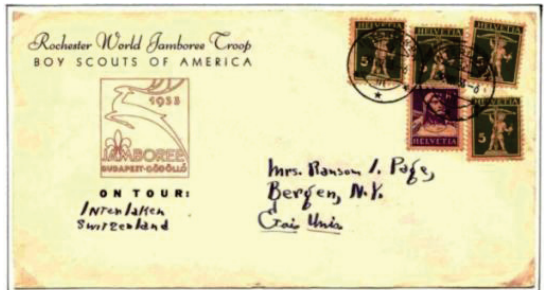 Rochester World Jamboree Troop
BOY SCOUTS OF AMERICA
1933
JAMBOREE
BUDAPEST-GÖDÖLLŐ
ON TOUR:
Interlaken
Switzerland
HELVETIA
5
HELVETIA
5
HELVETIA
5
HELVETIA
HELVETIA
5
Mrs. Ransom I. Page,
Bergen, N.Y.